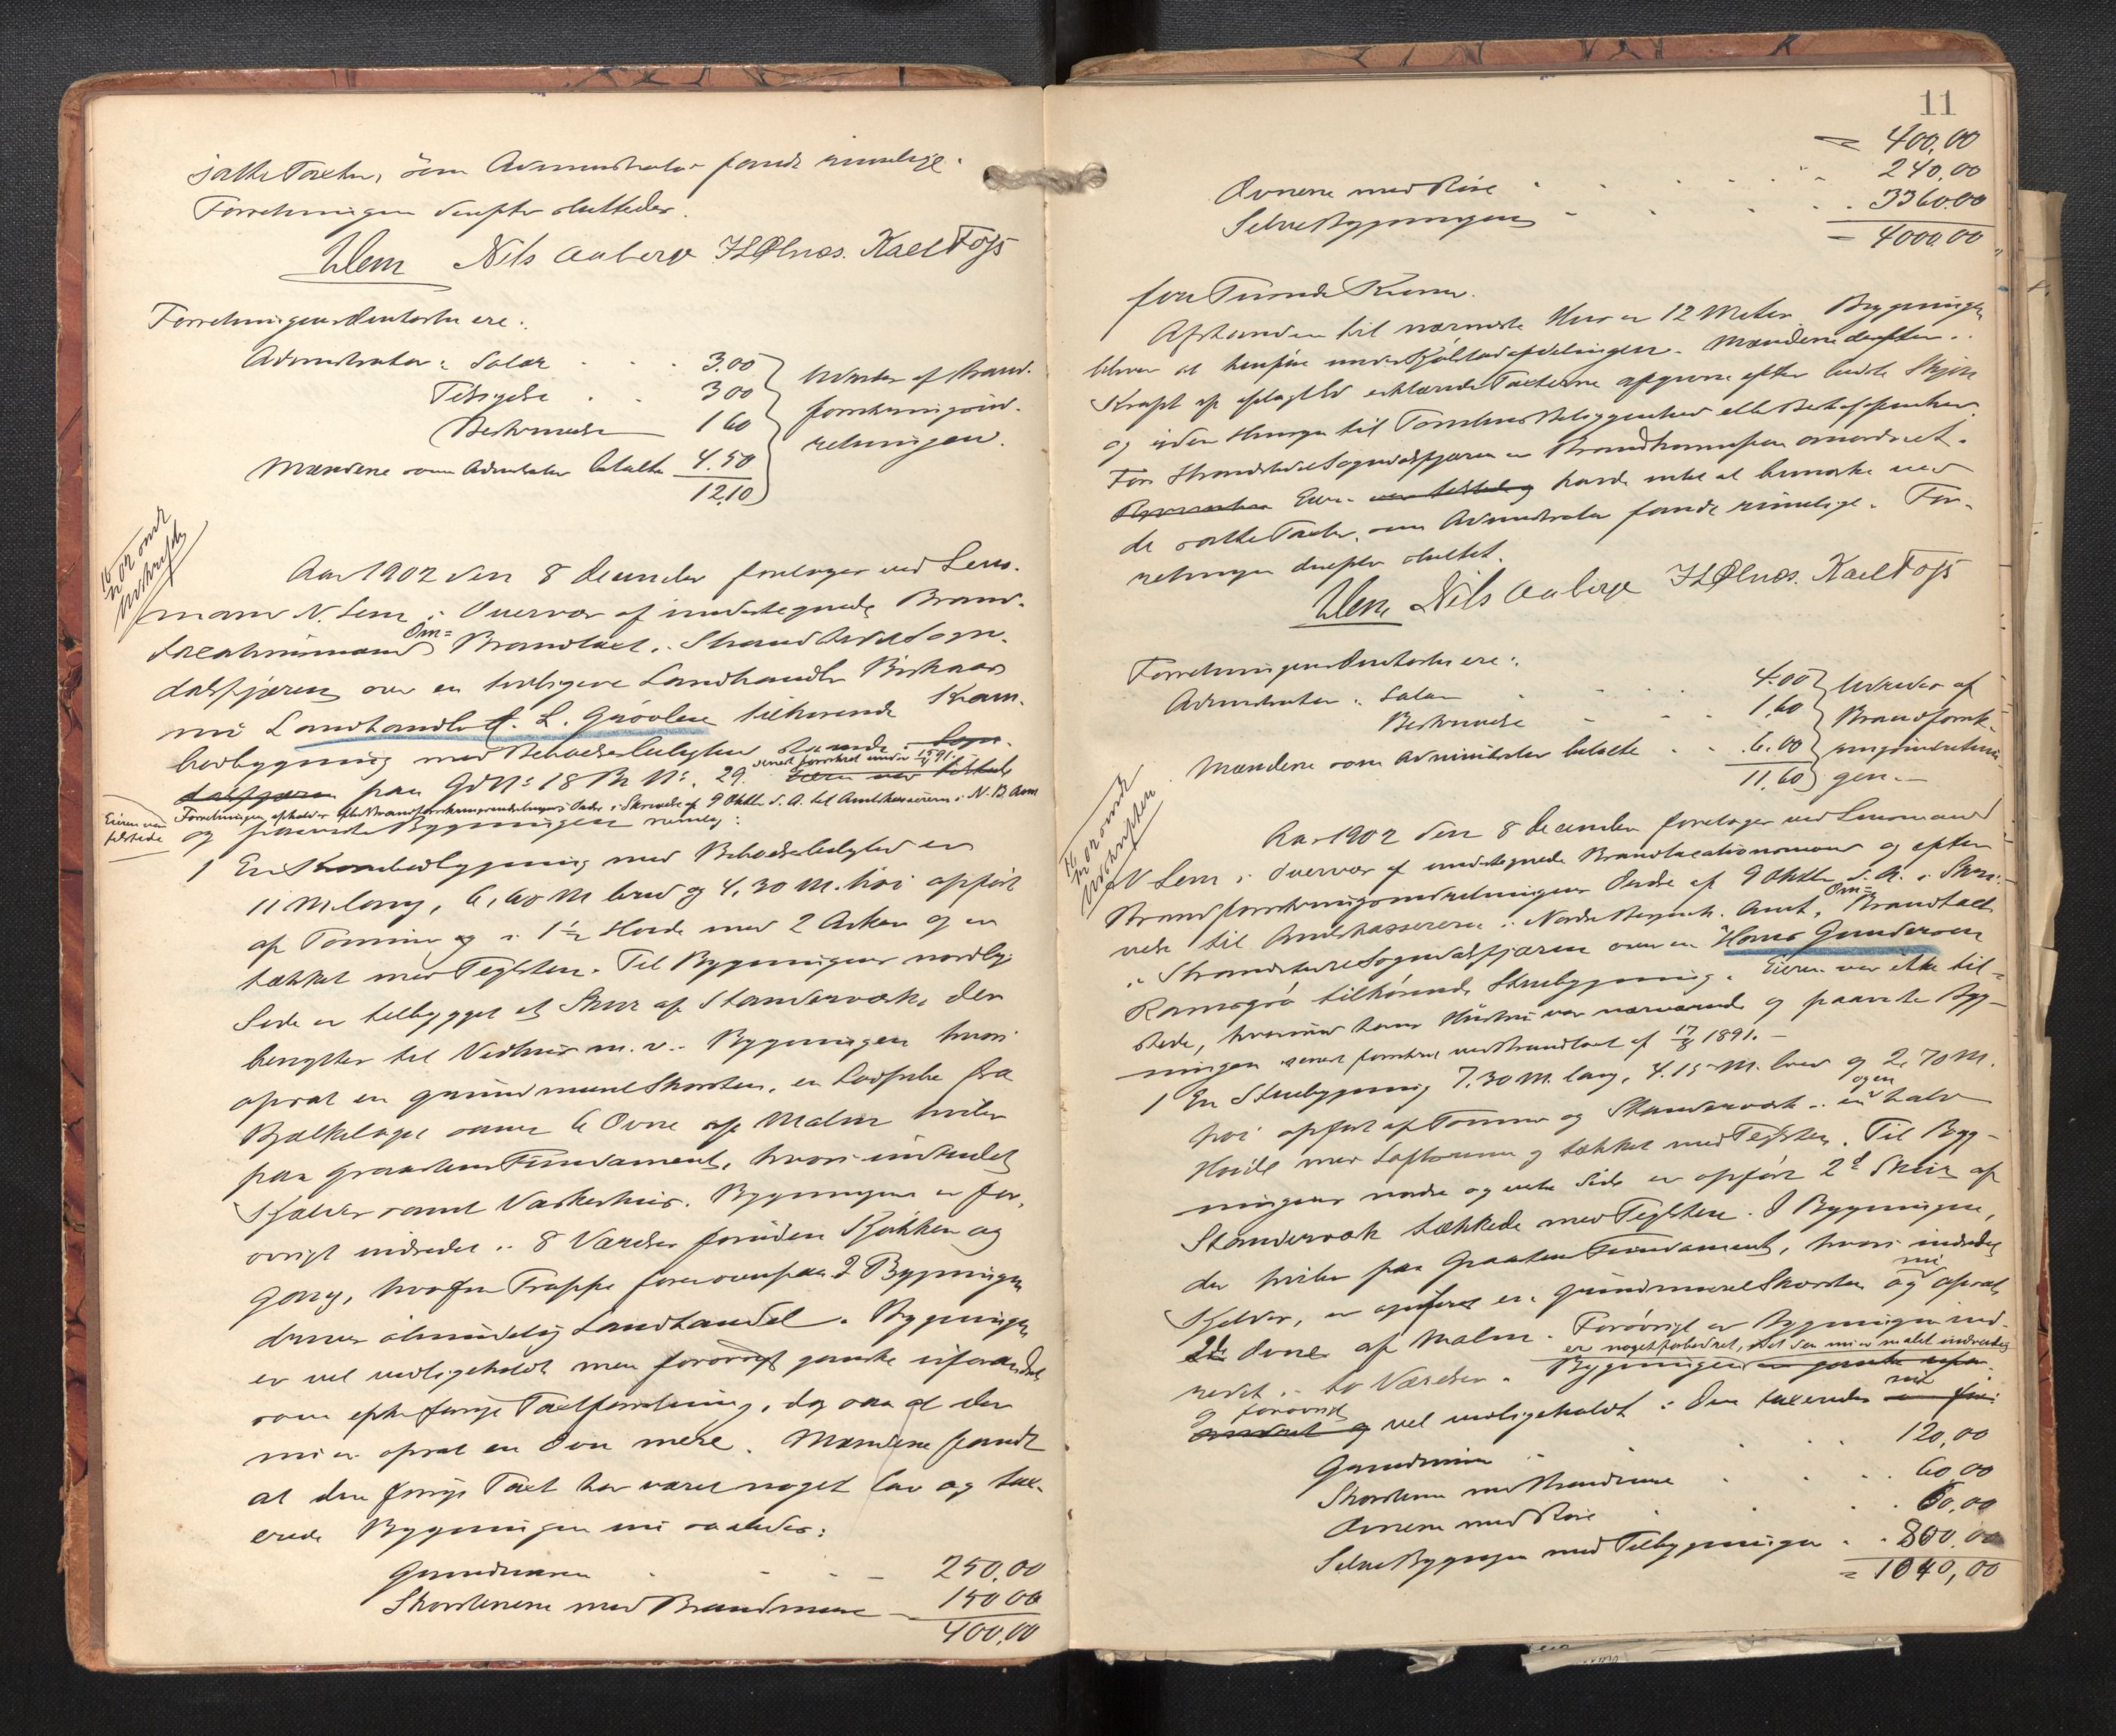 satte Taxter, som Administrator fandt rimelige.
Forretningen derefter sluttedes.
NLem Nils Aaberge H Ølnæs. Kael Fojs
Forretningens Omkostninger ere:
Administrator: Salær 3.00
Tilsigelse 3 00
Beskrivelse 1 60
Mændene som Administrator betalte 4.50
12,10
Udredes af Brand-
forsikringsind-
retningen.
Udskriften
Aar 1902 den 8 december foretoges ved Lens-
mand N. Lem i Overvær af undertegnede Brand-
taxationsmænd Om= Brandtaxt i Strandstedet Sogn-
dalsfjæren over en tidligere Landhandler
nu Landhandler L. L. Grøvlen tilhørende Kram-
bodbygning med Beboelseleilighed staaende i Sogn-
dalsfjæren paa Gd N: 18 Br N: 29. senest forsikret under 1891.
Eieren var tilstede
Forretningen afholdes efter Brandforsikringsindretningens Ordre i Skrivelse af 9 Oktbr d. A. til Amtskassereren i N. B. Amt
og paaviste Bygningen nemlig:
Eieren var
tilstede
1 En Krambodbygning med Beboelseleilighed er
11 M. lang, 6,60 M bred og 4,30 M. høi opført
af Tømmer og i 1½ Høide med 2 Arker og er
tækket med Teglsten. Til Bygningens nordlige
Side er tilbygget et Skur af Standerværk, der
benyttes til Vedhus m. v. Bygningen hvori
opsat en grundmuret Skorsten, en fra
Bjælkelaget samt 6 Ovne af Malm hviler
paa Graastens Fundament, hvori indredet
Kjælder samt Vaskerhus. Bygningen er for-
øvrigt indredet i 8 Værelser foruden Kjøkken og
Gang, hvorfra Trappe fører ovenpaa. I Bygningen
drives almindelig Landhandel. Bygningen
er vel vedligeholdt men forøvrigt ganske uforandret
som efter forrige Taxtforretning, dog saa at der
nu er opsat en Ovn mere. Mændene fandt
at den forrige Taxt har været noget lav og tax-
erede Bygningen nu saaledes:
Grundmuren 250,00
Skorstenene med Brandmure 150 00
400,00
11
= 400,00
Ovnene med Rør 240,00
Selve Bygningen 3360.00
= 4000,00
fire Tusinde Kroner.
Afstanden til nærmeste Hus er 12 Meter. Bygningen
bliver at henføre under Kjøbstadafdelingen. Mændene derefter i
Kraft af aflagt Ed erklærede Taxterne afgivne efter bedste Skjøn
og uden Hensyn til Tomtens Beliggenhed eller Beskaffenhed.
For Strandstedet Sogndalsfjæren er Brandkommission anordnet.
Eieren var tilstede og havde intet at bemærke ved
de satte Taxter, som Administrator fandt rimelige. For-
retningen derefter sluttet.
NLem Nils Aaberge H Ølnæs. Kael Fojs
Forretningens Omkostninger ere:
Administrator: Salær 4.00
Beskrivelse 1,60
Mændene som Administrator betalte 6.00
11,60
Udredes af
Brandforsik-
ringsindretnin-
gen.
Udskriften
Aar 1902 den 8 december foretoges ved Lensmand
N Lem i Overvær af undertegnede Brandtaxationsmænd og efter
Brandforsikringsindretningens Ordre af 9 Oktbr d. A. i Skri-
velse til Amtskassereren i Nordre Bergenh. Amt, Om= Brandtaxt
i Strandstedet Sogndalsfjæren over en Hans Gundersen
Ramsgrø tilhørende Stuebygning. Eieren var ikke til-
stede, hvorimod hans Hustru var nærværende og paaviste Byg-
ningen senest forsikret ved Brandtaxt af 17/8 1891.
1 En Stuebygning 7.30 M. lang, 4.15 M. bred og 2,70 M.
høi opført af Tømmer og Standerværk i en og en halv
Høide med Loftsrum og tækket med Teglsten. Til Byg-
ningens nordre og vestre Side er opført 2de Skur af
Standerværk tækkede med Teglsten. I Bygningen,
der hviler paa Graasten Fundament, hvori indredet
Kjelder, er opført en grundmuret Skorsten og nu opsat
2de Ovne af Malm. Forøvrigt er Bygningen ind-
redet i to Værelser. Bygningen er noget forbedret, idet den nu er malet indvendig
og forøvrigt vel vedligeholdt: Den taxeredes nu
Grundmuren 120,00
Skorstenen med Brandmure 60,00
Ovnene med Rør 60,00
Selve Bygningen med Tilbygninger 800,00
= 1040,00